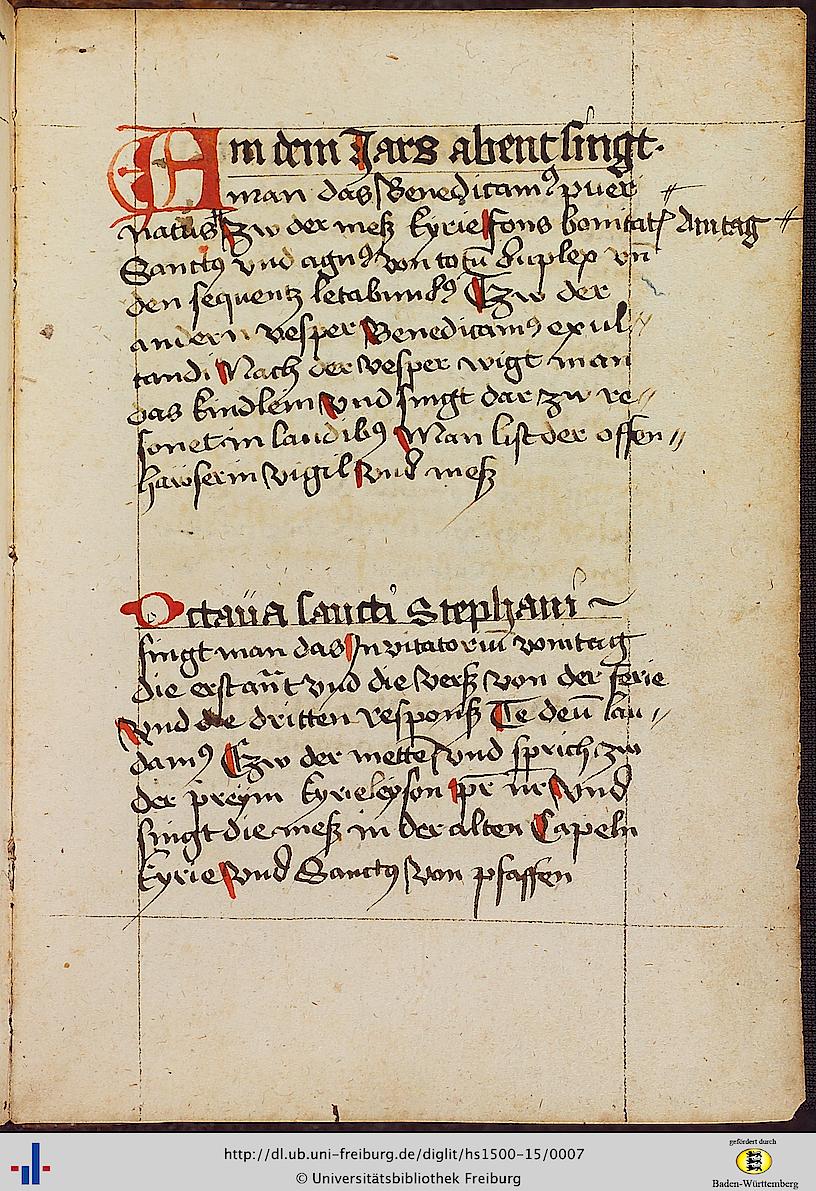 An dem Jars abent singt.
man das Benedicamꝰ puer
natus Zw der meß kyrie fons bonitatꝭ Am tag
Sanctꝰ vnd agnꝰ von totū duplex vn̄
den sequentz letabundꝰ Czw der
andern vesper Benedicamꝰ exul//
tandi Nach der vesper wigt man
das kindlein vnd singt dar zw re//
sonet in laudibꝰ Man list der offen//
hawserin vigil vnd meß
Octaūa sancti Stephani ~
singt man das Invitatoriū vom tag
die erst an̄t vnd die verß von der ferie
vnd die dritten responß Te deū lau//
damꝰ Czw der mette vnd sprich zw
der preym kyrieleyson pr̄ nr̄ vnd
singt die meß in der alten Capeln
kyrie vnd Sanctꝰ von pfaffen
http://dl.ub.uni-freiburg.de/diglit/hs1500-15/0007
© Universitätsbibliothek Freiburg
gefördert durch
Baden-Württemberg